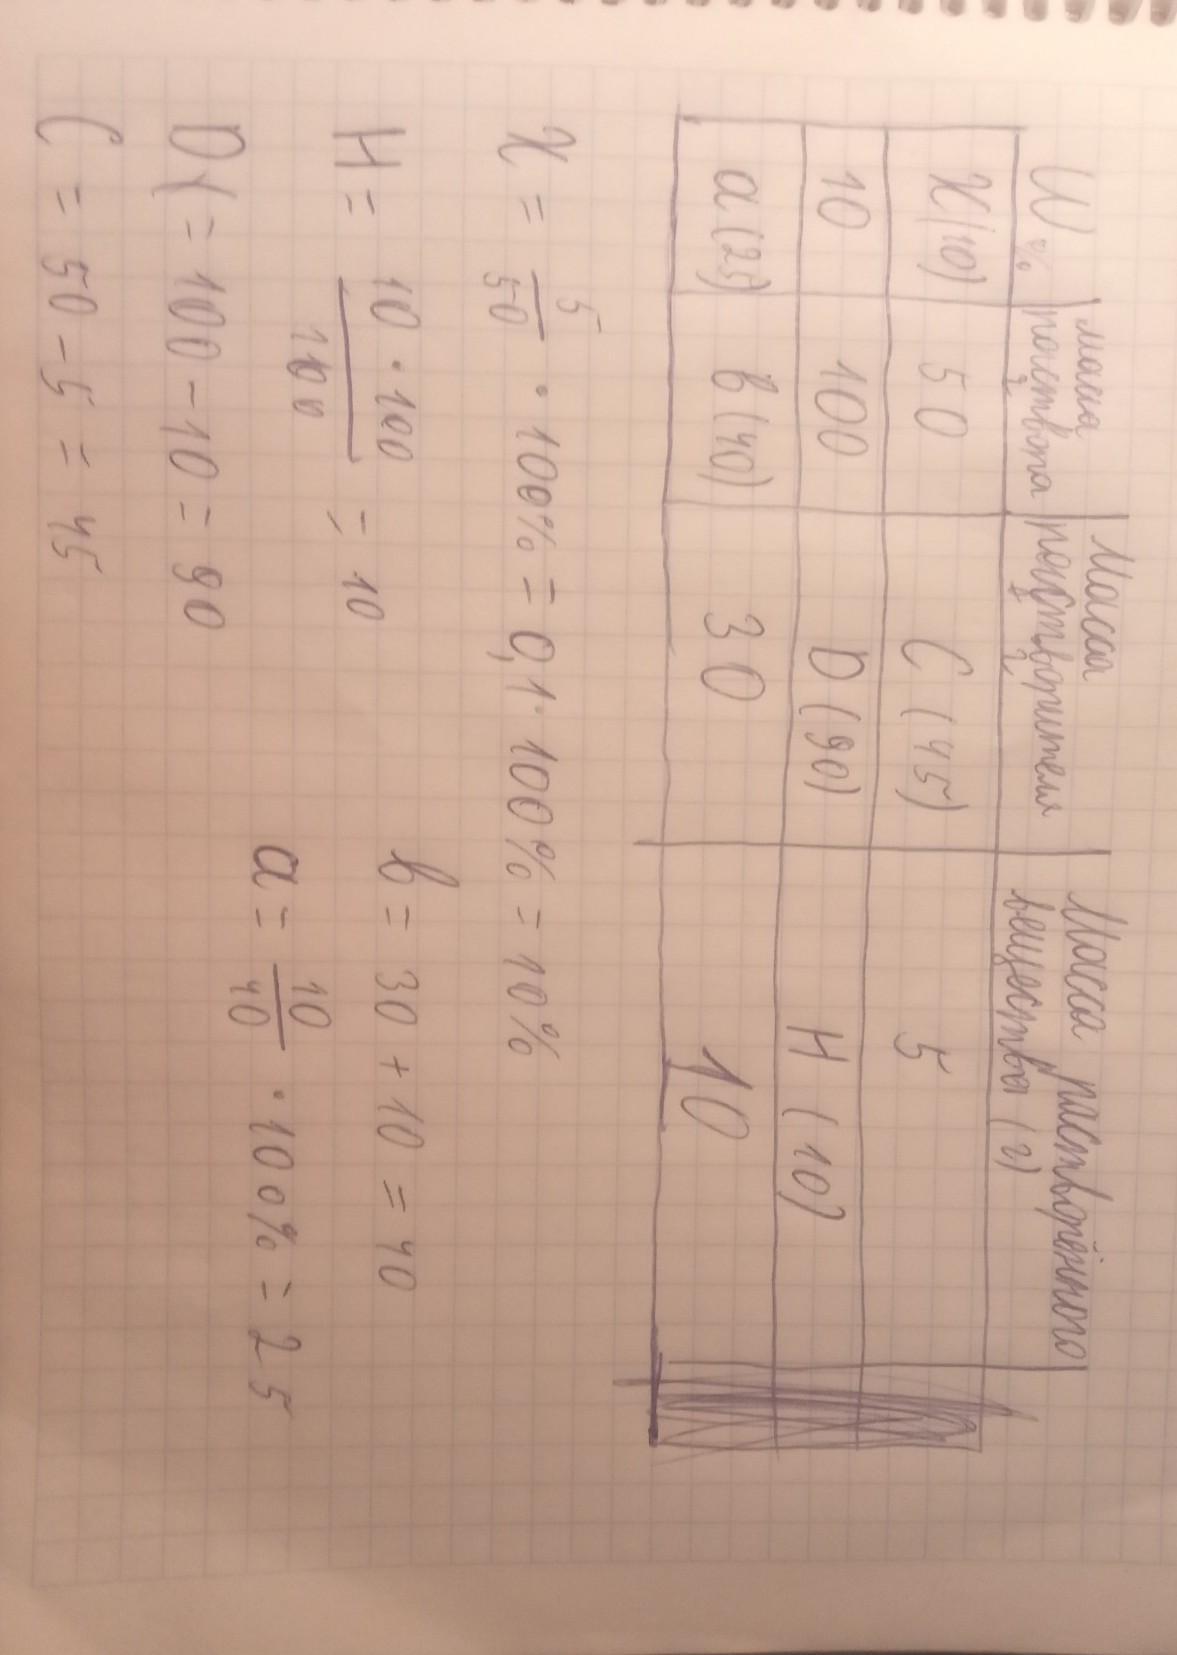 W % масса раствора г Масса растворителя г Масса растворённого вещества (г)
X(10) 50 C (45) 5
10 100 D (90) H (10)
a (25) b (40) 30 10
X = 5/50 · 100% = 0,1 · 100% = 10%
H = 10 · 100/100 = 10
b = 30 + 10 = 40
a = 10/40 · 100% = 25
D = 100 - 10 = 90
C = 50 - 5 = 45